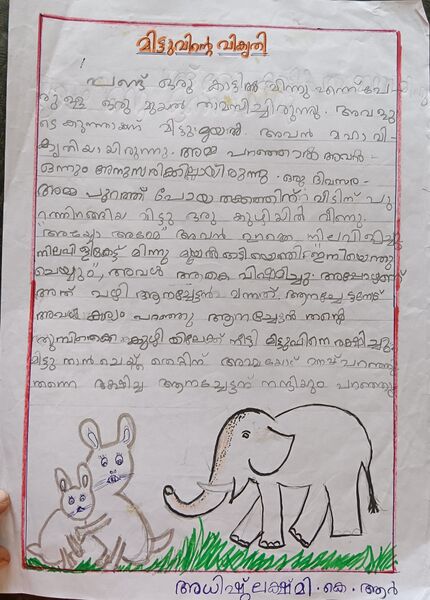 മിട്ടുവിന്റെ വികൃതി
പണ്ട് ഒരു കാട്ടിൽ മിന്നു എന്ന് പേ
രുള്ള ഒരു മുയൽ താമസിച്ചിരുന്നു. അവളു
ടെ കുഞ്ഞാണ് മിട്ടുമുയൽ. അവൻ മഹാ വി-
കൃതിയായിരുന്നു. അമ്മ പറഞ്ഞാൽ അവൻ -
ഒന്നും അനുസരിക്കില്ലായിരുന്നു. ഒരു ദിവസം
അമ്മ പുറത്ത് പോയ തക്കത്തിന് വീടിന് പു
റത്തിറങ്ങിയ മിട്ടു ഒരു കുഴിയിൽ വീണു.
"അയ്യോ അമ്മേ" അവൻ ഉറക്കെ നിലവിളിച്ചു
നിലവിളികേട്ട് മിന്നു മുയൽ ഓടിയെത്തി. ഇനിയെന്തു
ചെയ്യും", അവൾ ആകെ വിഷമിച്ചു. അപ്പോഴാണ്
അത് വഴി ആനച്ചേട്ടൻ വന്നത്. ആനച്ചേട്ടനോട്
അവൾ കാര്യം പറഞ്ഞു ആനച്ചേട്ടൻ തന്റെ
തുമ്പിക്കൈ കുഴിയിലേക്ക് നീട്ടി മിട്ടുവിനെ രക്ഷിച്ചു.
മിട്ടു താൻ ചെയ്ത തെറ്റിന് അമ്മയോട് മാപ്പ് പറഞ്ഞു
തന്നെ രക്ഷിച്ച ആനച്ചേട്ടന് നന്ദിയും പറഞ്ഞു
അധിഷ്ടലക്ഷ്മി. കെ. ആർ